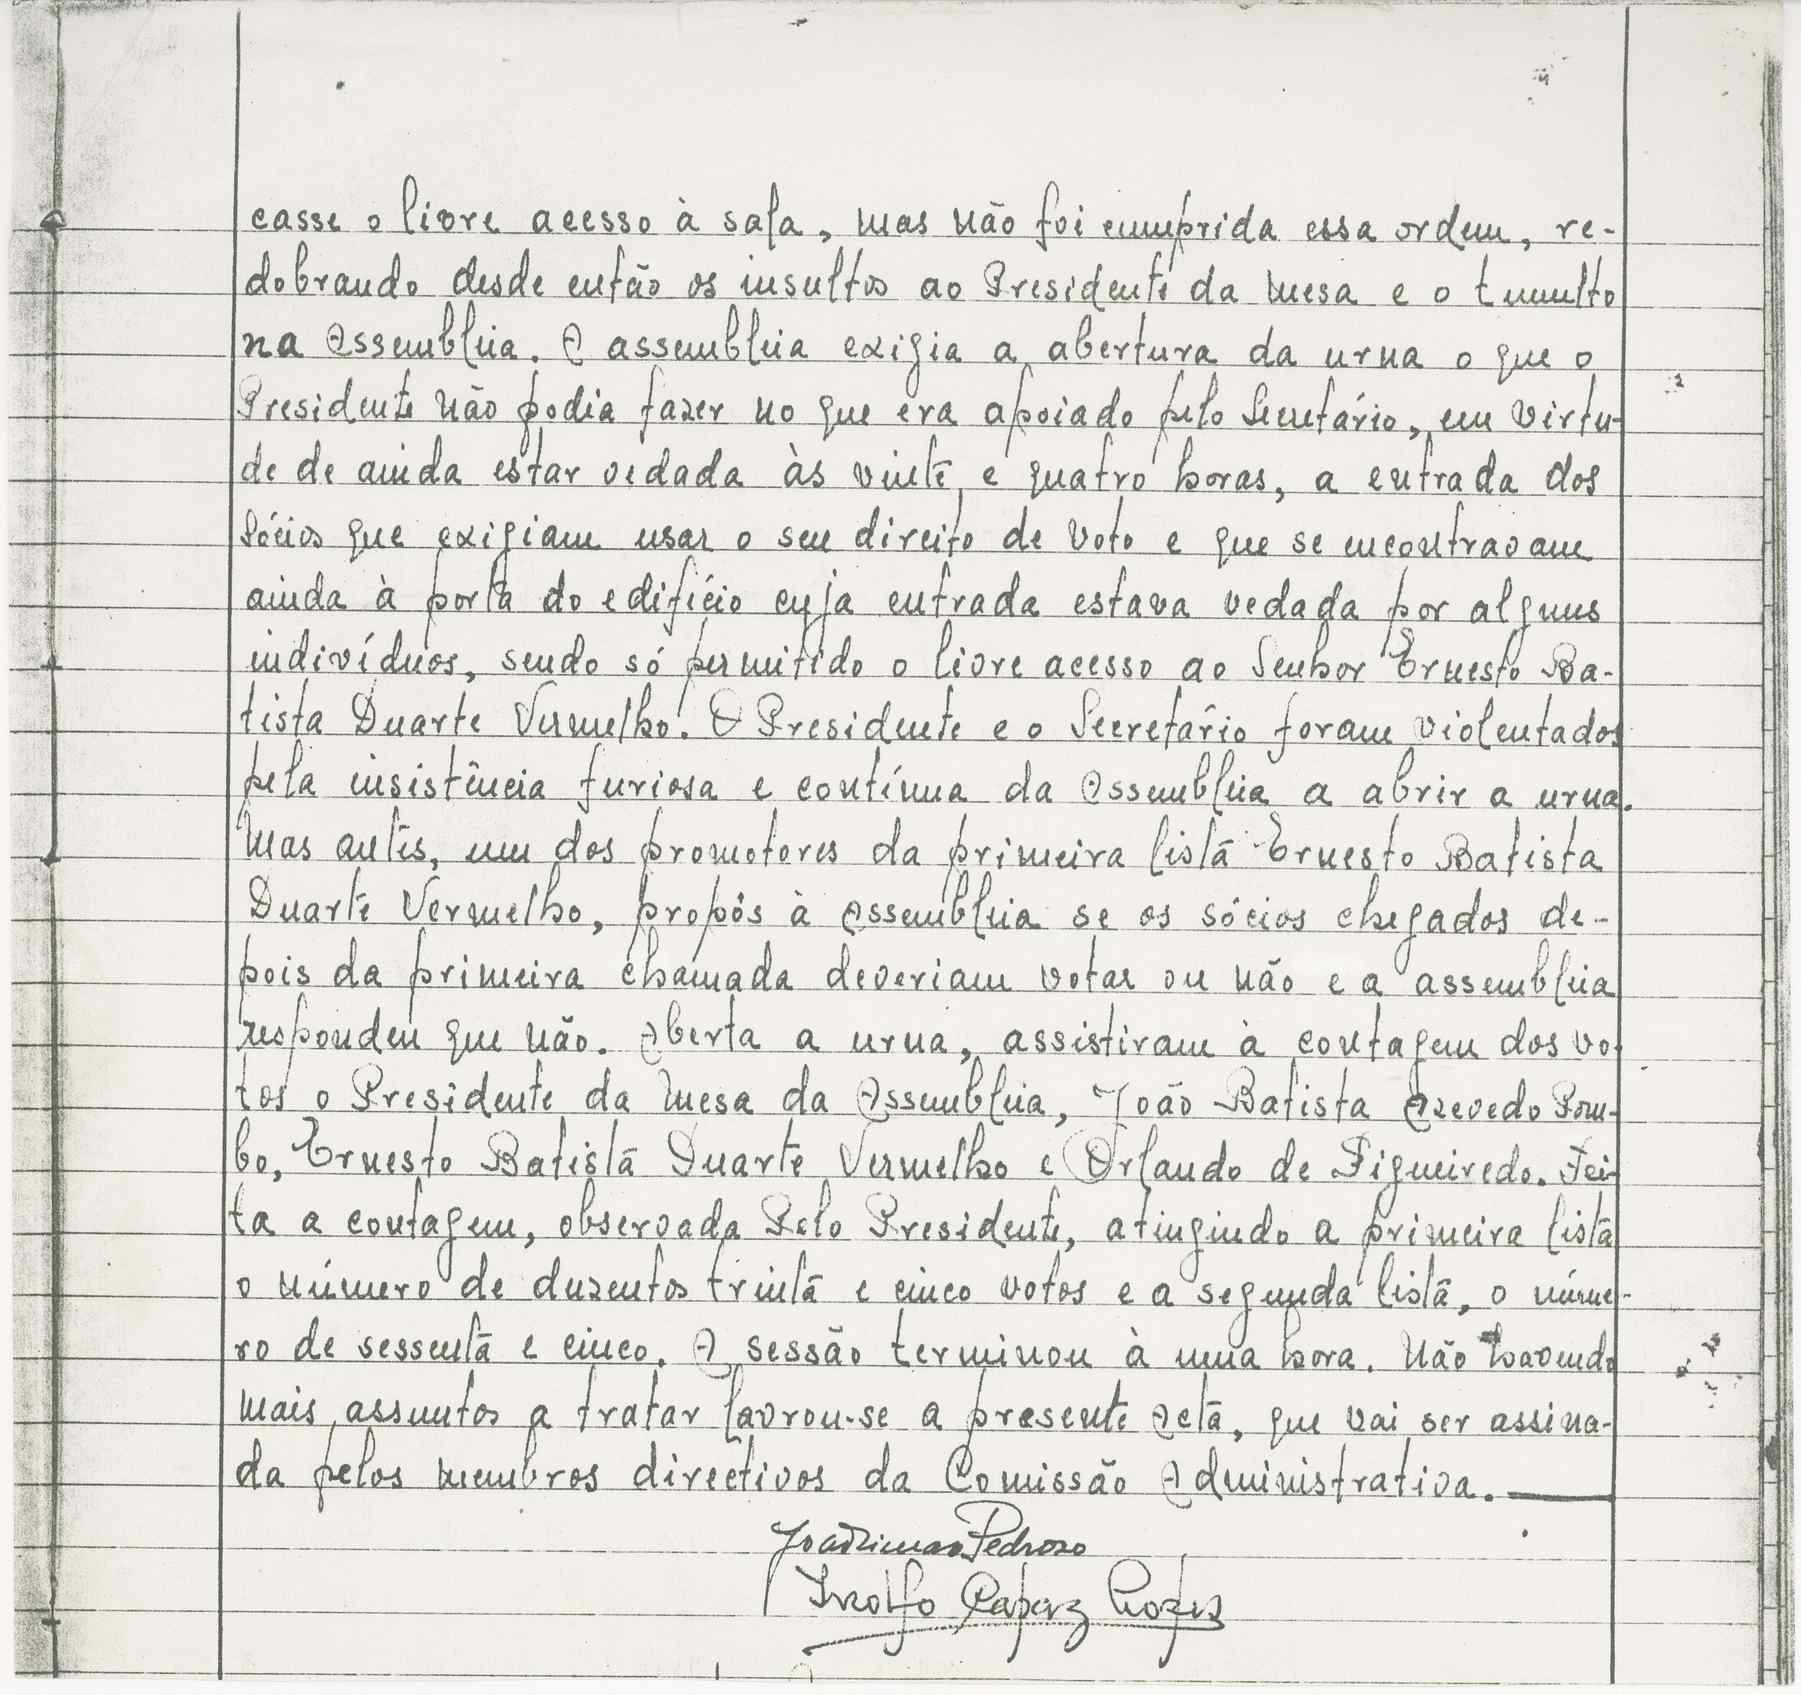 casse o livre acesso à sala, mas não foi cumprida essa ordem, re-
dobrando desde então os insultos ao Presidente da Mesa e o tumulto
na Assembleia. A assembleia exigia a abertura da urna o que o
Presidente não podia fazer no que era apoiado pelo Secretário, em virtu-
de de ainda estar vedada às vinte e quatro horas, a entrada dos
sócios que exigiam usar o seu direito de voto e que se encontravam
ainda à porta do edifício cuja entrada estava vedada por alguns
indivíduos, sendo só permitido o livre acesso ao Senhor Ernesto Ba-
tista Duarte Vermelho. O Presidente e o Secretário foram violentados
pela insistência furiosa e contínua da Assembleia a abrir a urna.
Mas antes, um dos promotores da primeira lista Ernesto Batista
Duarte Vermelho, propôs à Assembleia se os sócios chegados de-
pois da primeira chamada deveriam votar ou não e a assembleia
respondeu que não. Aberta a urna, assistiram à contagem dos vo-
tos o Presidente da Mesa da Assembleia, João Batista Azevedo Pom-
bo, Ernesto Batista Duarte Vermelho e Orlando de Figueiredo. Fei-
ta a contagem, observada Pelo Presidente, atingindo a primeira lista
o número de duzentos trinta e cinco votos e a segunda lista, o núme-
ro de sessenta e cinco. A sessão terminou à uma hora. Não havendo
mais assuntos a tratar lavrou-se a presente Acta, que vai ser assina-
da pelos membros directivos da Comissão Administrativa.
Pedroso